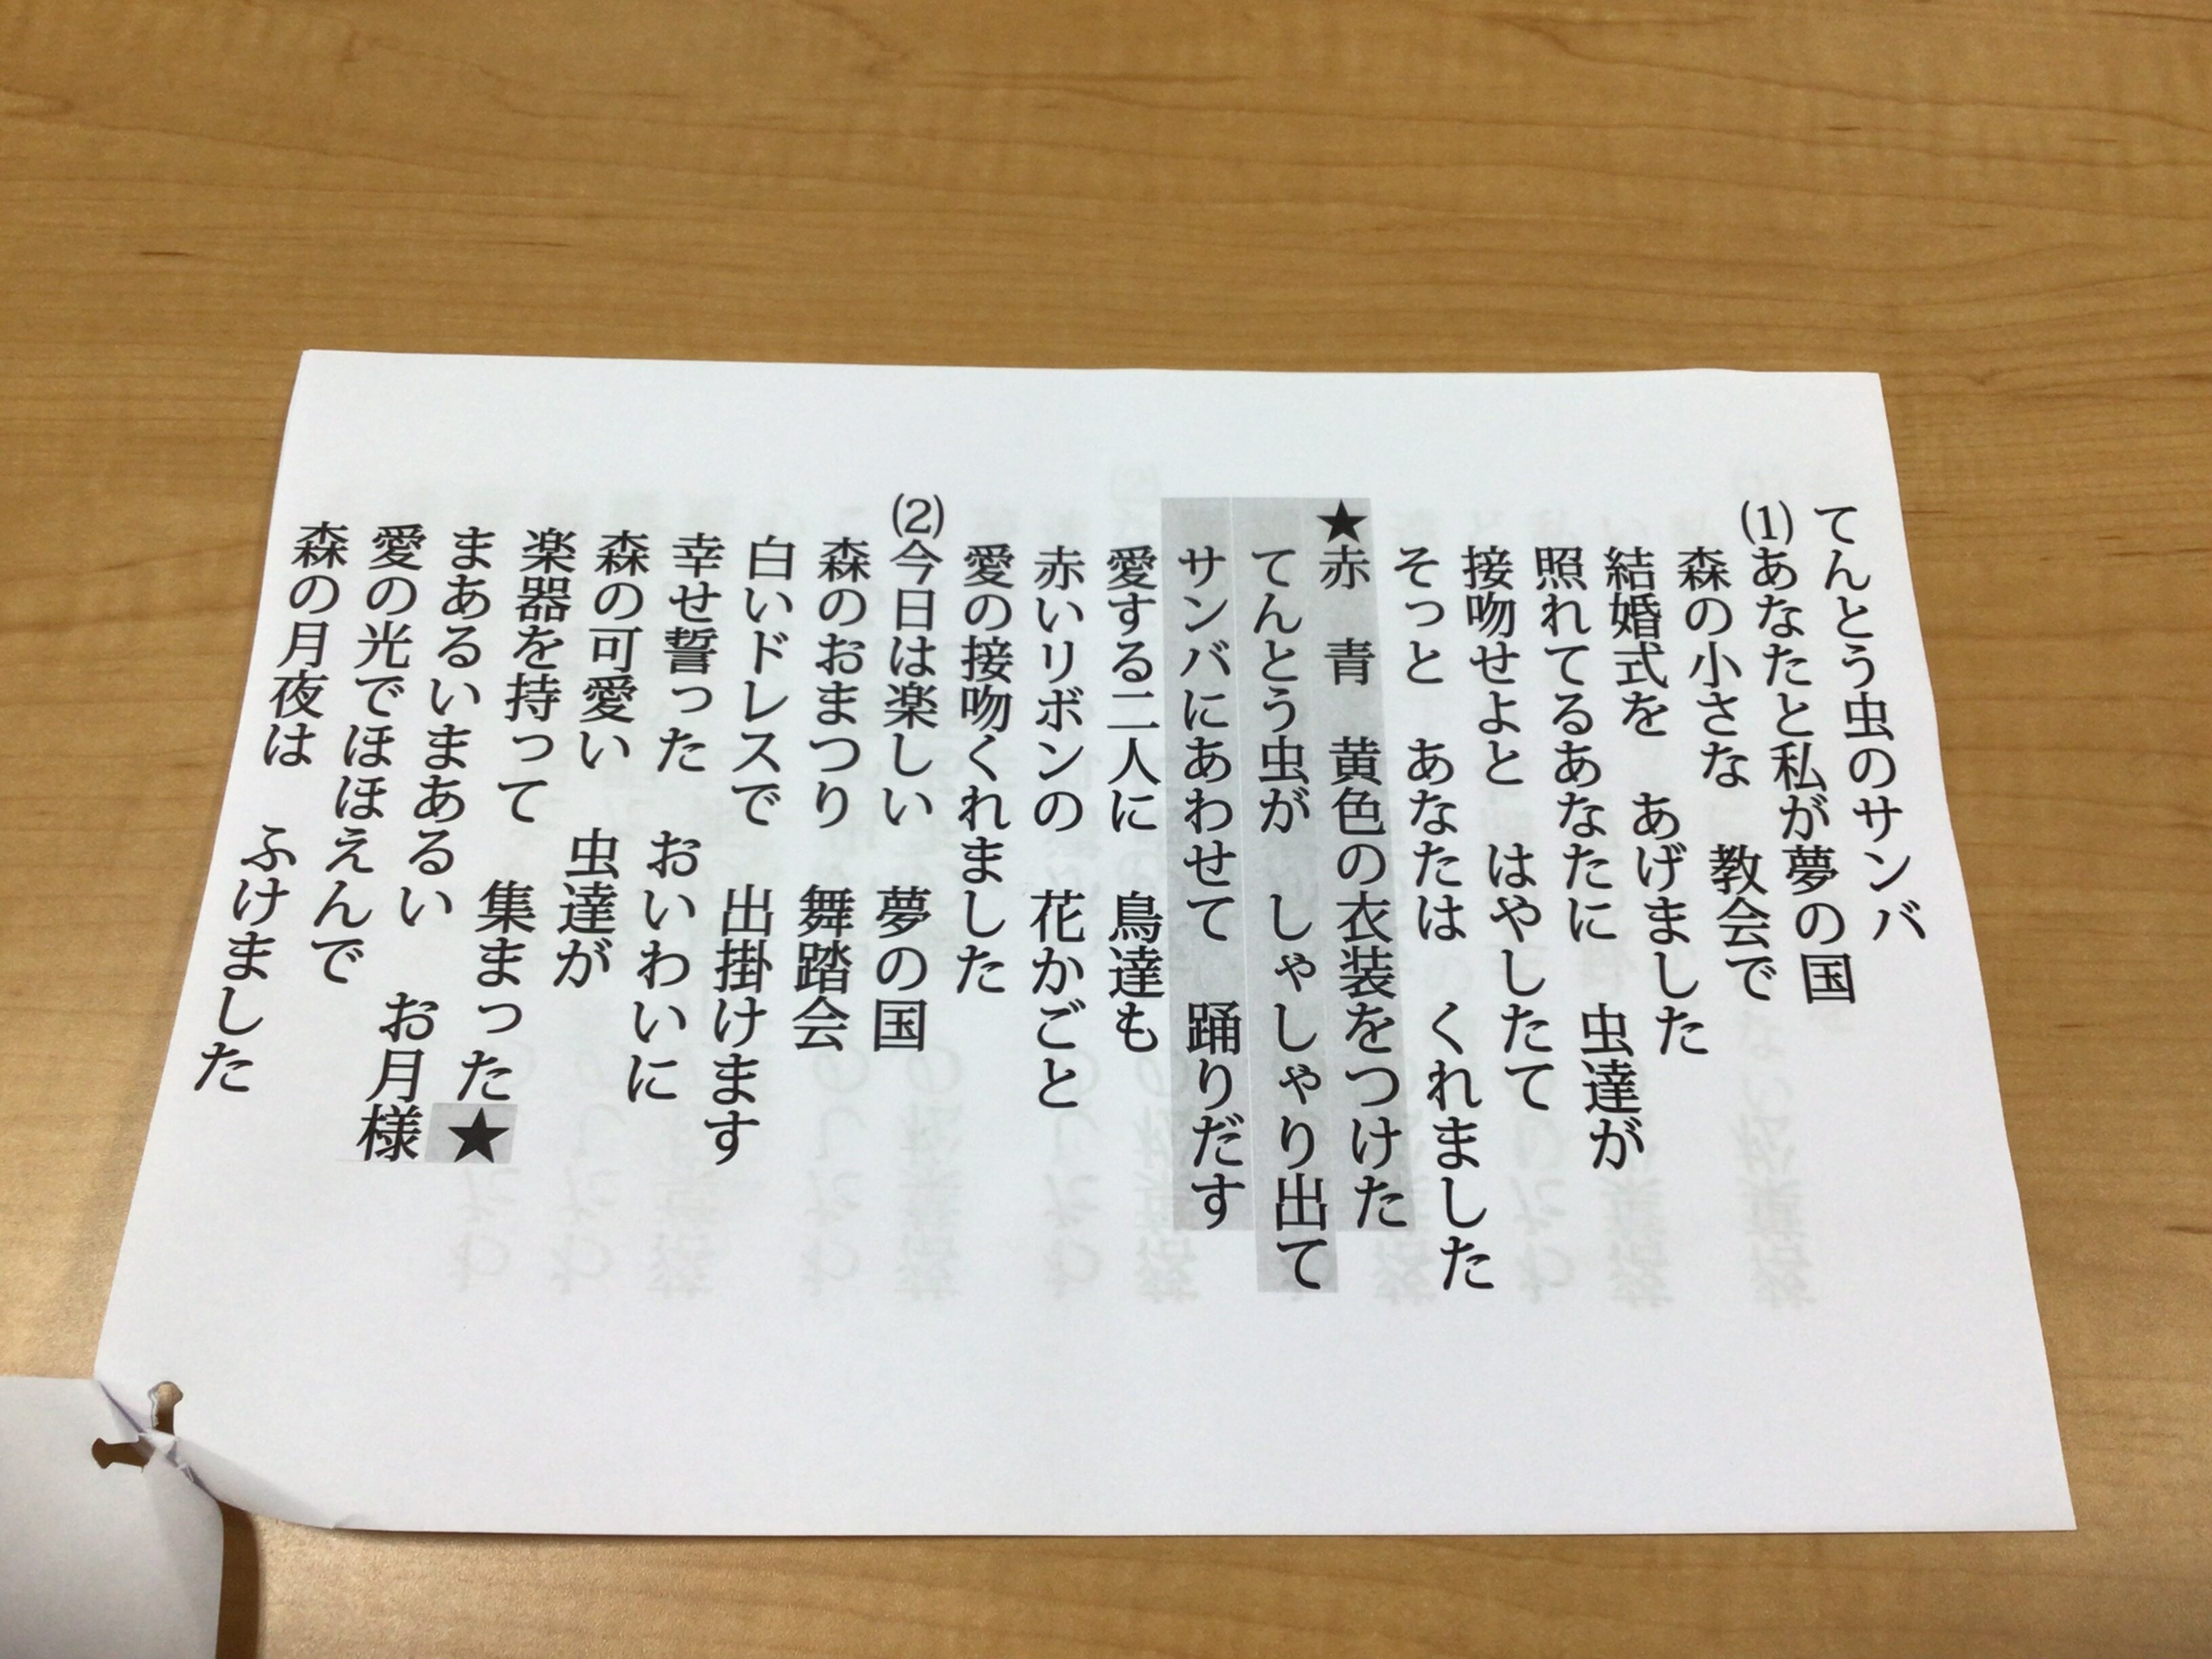 てんとう虫のサンバ
(1)あなたと私が夢の国
森の小さな　教会で
結婚式を　あげました
照れてるあなたに　虫達が
接吻せよと　はやしたて
そっと　あなたは　くれました
★赤　青　黄色の衣装をつけた
てんとう虫が　しゃしゃり出て
サンバにあわせて　踊りだす
愛する二人に　鳥達も
赤いリボンの　花かごと
愛の接吻くれました
(2)今日は楽しい　夢の国
森のおまつり　舞踏会
白いドレスで　出掛けます
幸せ誓った　おいわいに
森の可愛い　虫達が
楽器を持って　集まった★
まあるいまあるい　お月様
愛の光でほほえんで
森の月夜は　ふけました